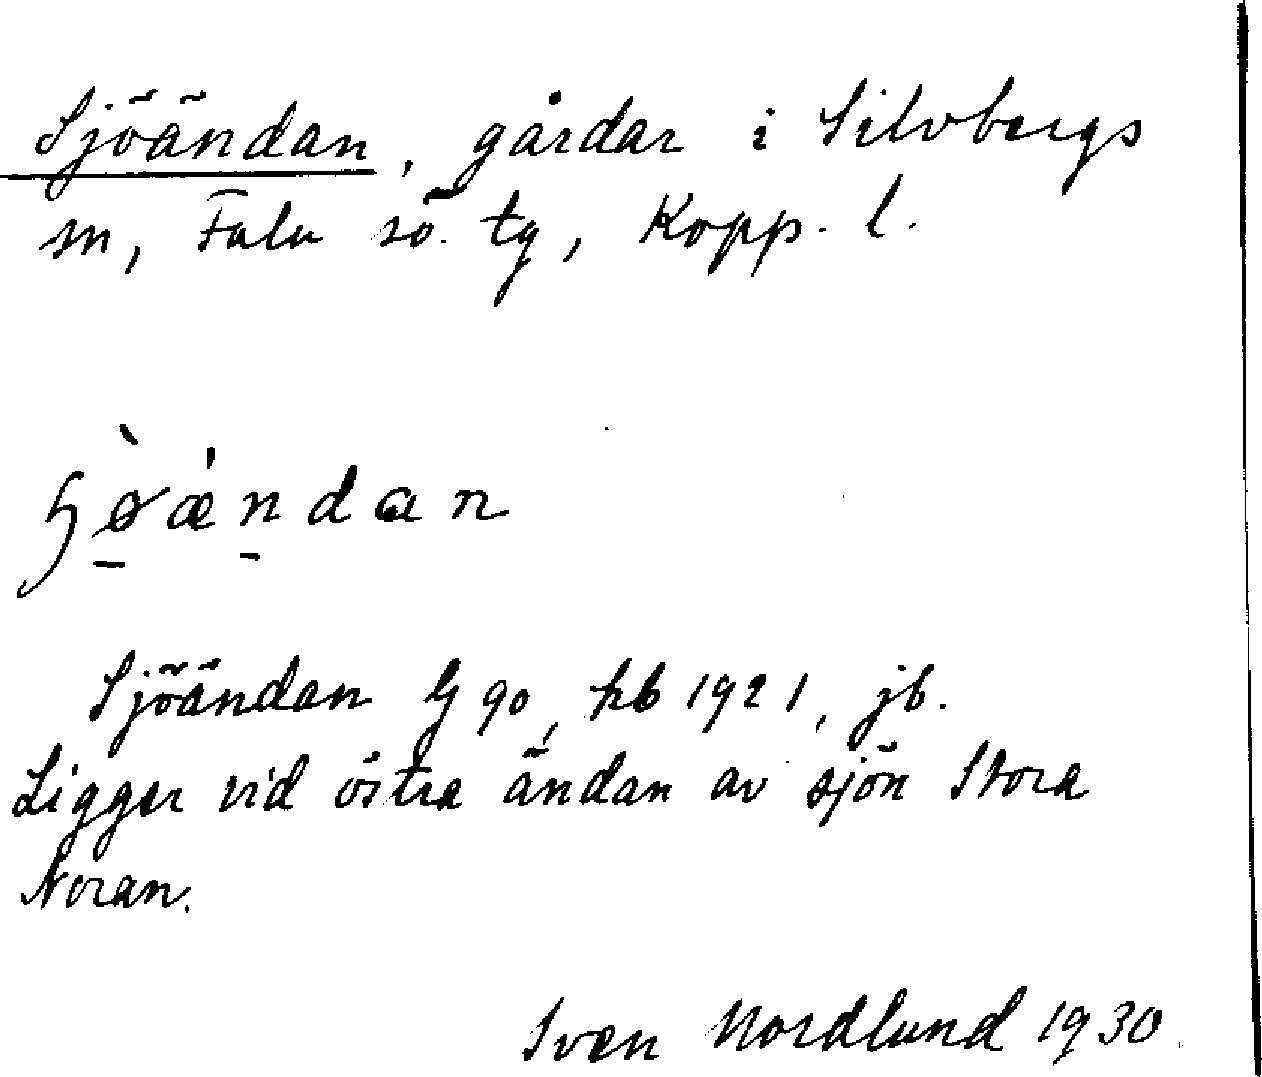 Sjöändan, gårdar i Silvbergs
sn, Falu sö. tg, Kopp. l.
ɧø̠̀æ̍n̠dan
Sjöändan G 90, hb 1921, jb.
Ligger vid östra ändan av sjön Stora
Noran.
Sven Nordlund 1930.